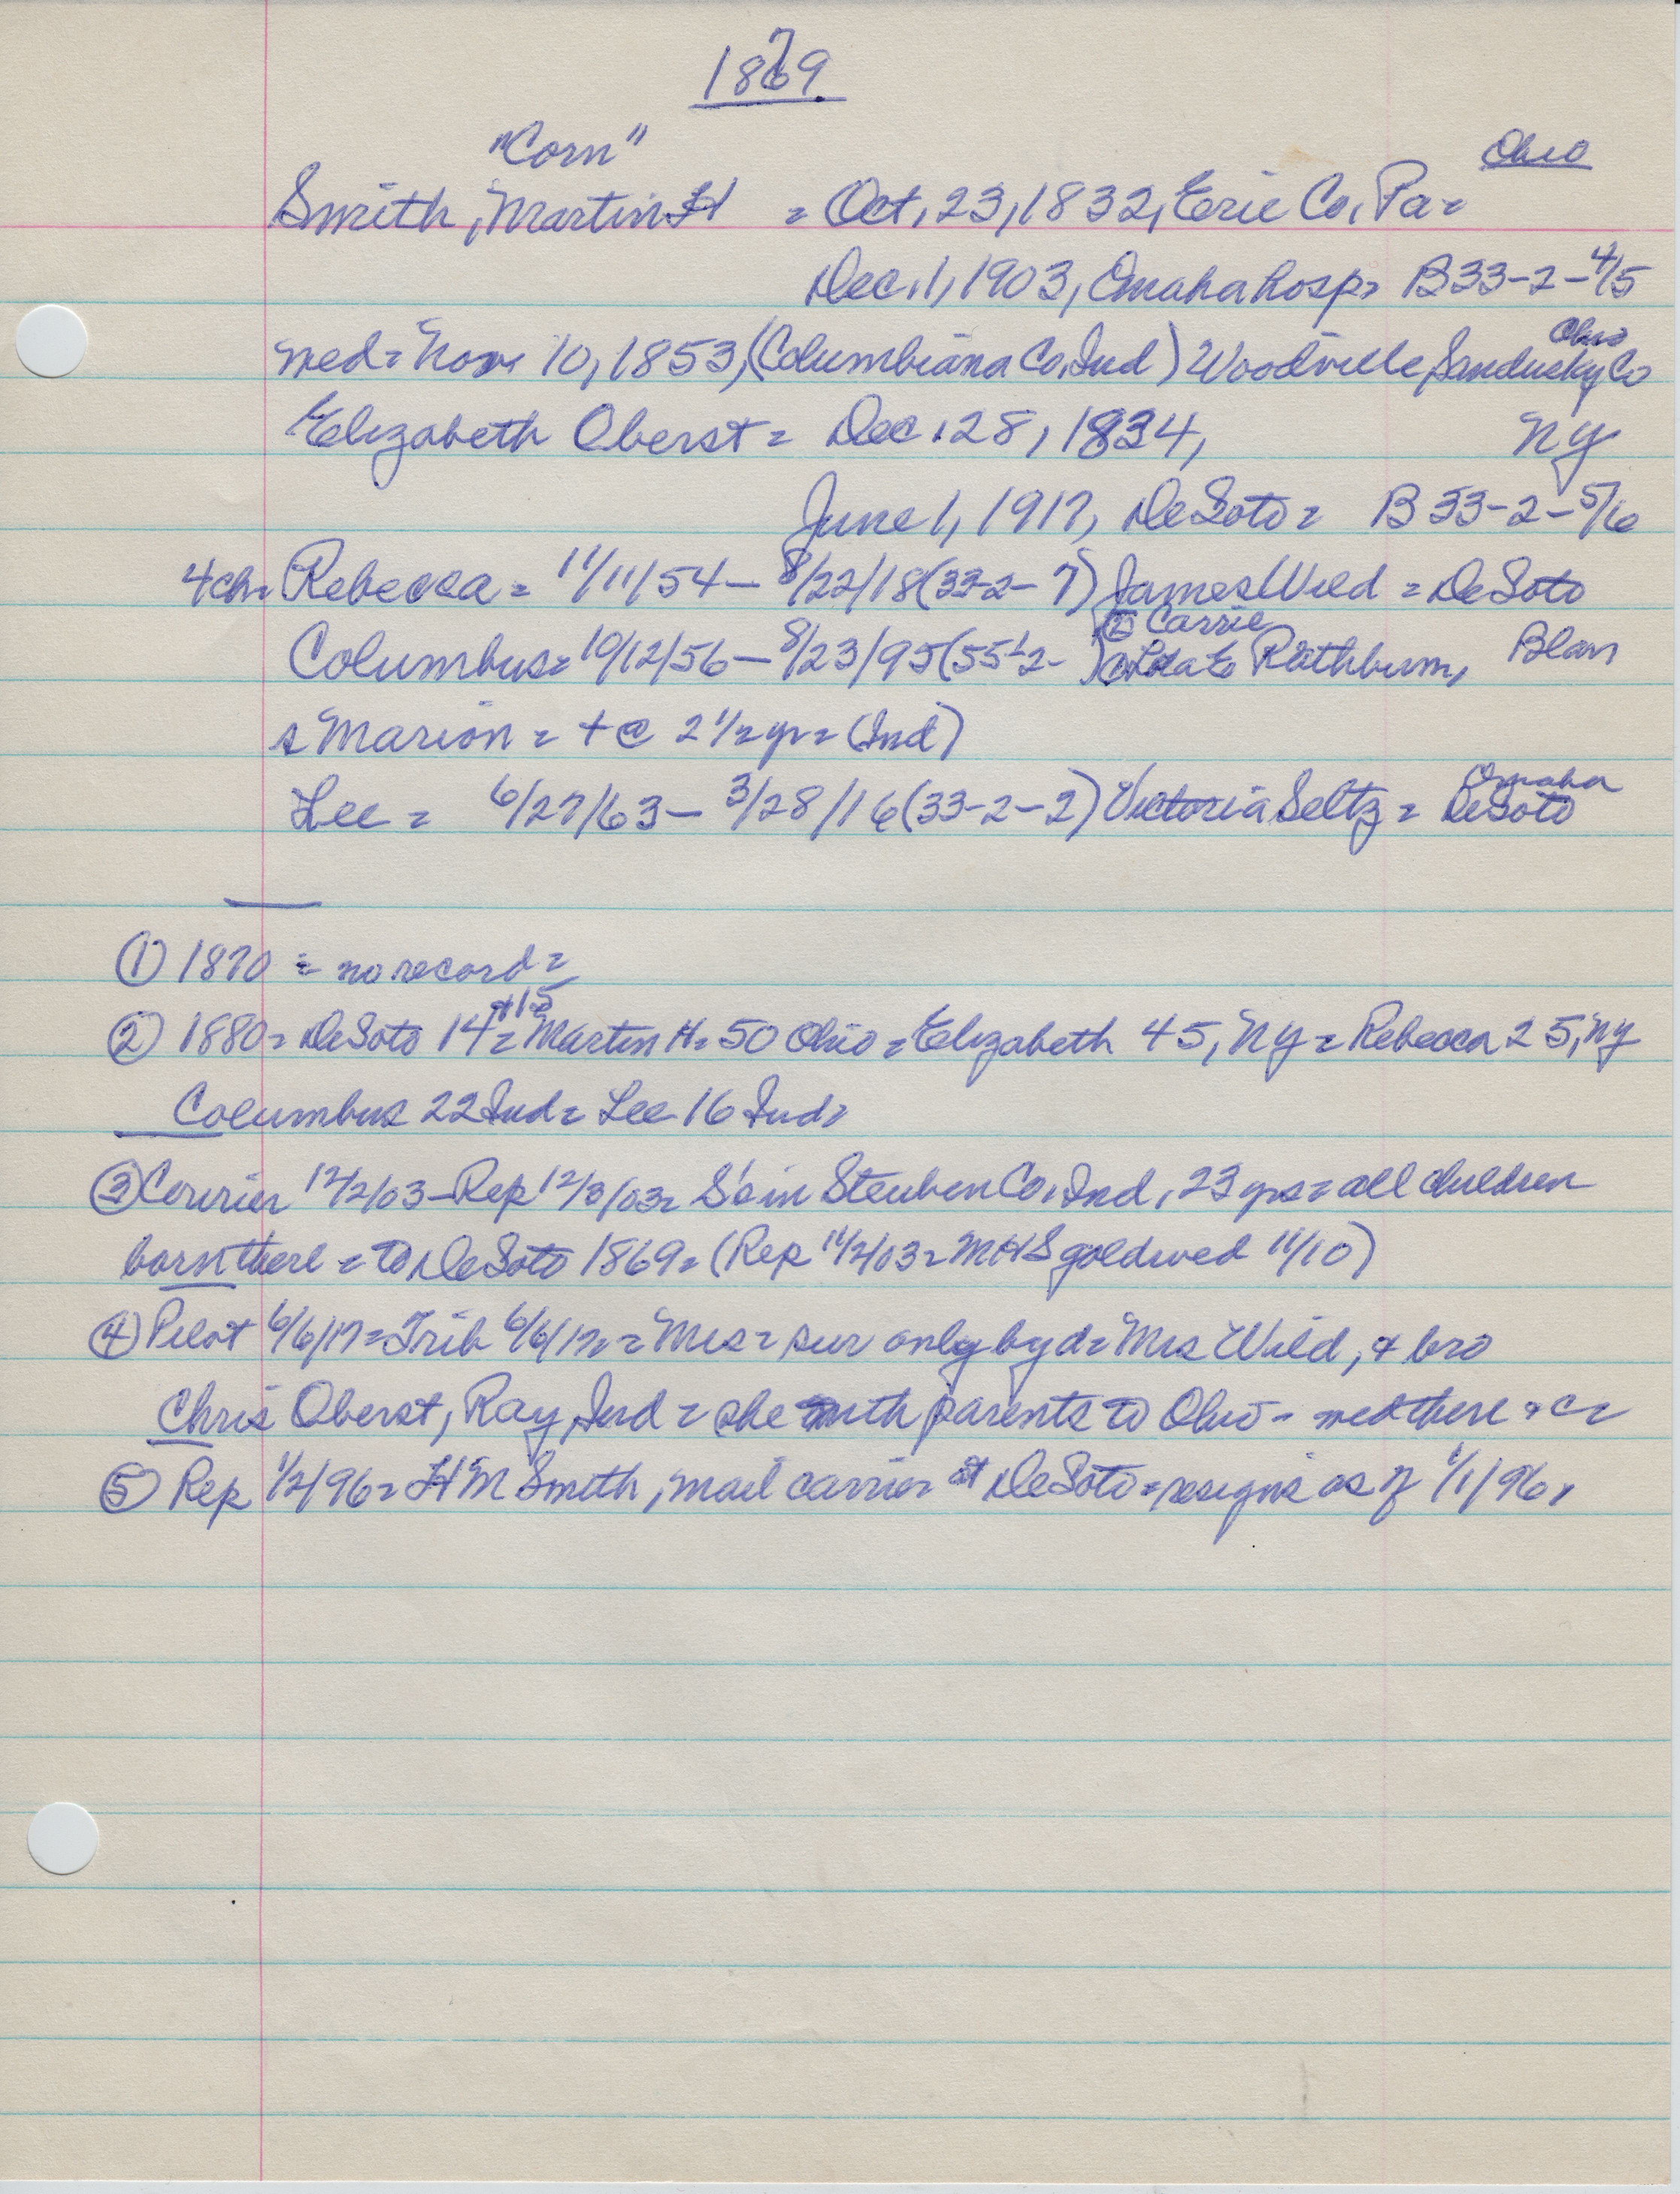 1869
"Corn"
Ohio
Smith, Martin H = Oct. 23, 1832, Erie Co, Pa =
Dec. 1, 1903, Omaha hosp = B33-2-4/5
Ohio
med = Nov 10, 1853, (Columbiana Co, Ind) Woodville, Sandusky Co
Elizabeth Oberst = Dec. 28, 1834, NY
June 1, 1917, DeSoto = B 33-2-5/6
4ch = Rebecca = 11/11/54 - 8/22/18 (33-2-7) James Wild = DeSoto
② Carrie
Columbus = 10/12/56 - 8/23/95 (55½- ) Rathburn, Blair
s Marion = + @ 2 1/2 yr = (Ind)
Omaha
Lee = 6/27/63 - 3/28/16 (33-2-2) Victoria Seltz = DeSoto
① 1870 = no record =
+15
② 1880 = DeSoto 14 = Martin H = 50 Ohio = Elizabeth 45, NY = Rebecca 25, NY
Columbus 22 Ind = Lee 16 Ind =
③ Courier 12/2/03 - Rep 12/3/03 = S's in Steuben Co, Ind, 23 yrs = all children
born there = to DeSoto 1869 = (Rep 11/2/03 = MHS gold wed 11/10)
④ Pilot 6/6/17 = Trib 6/6/17 = Mrs = sur only by d = Mrs Wild, & bro
Chris Oberst, Ray, Ind = she with parents to Ohio - med there & c =
⑤ Rep 1/2/96 = HM Smith, mail carrier at DeSoto = resigns as of 1/1/96,